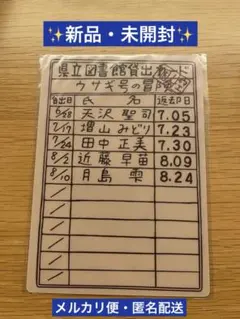 ✨新品・未開封✨
県立図書館貸出カード
ウサギ号の冒険
貸出日 氏名 返却日
6/28 天沢聖司 7.05
7/17 増山みどり 7.23
7/24 田中正美 7.30
8/2 近藤早苗 8.09
8/10 月島雫 8.24
メルカリ便・匿名配送